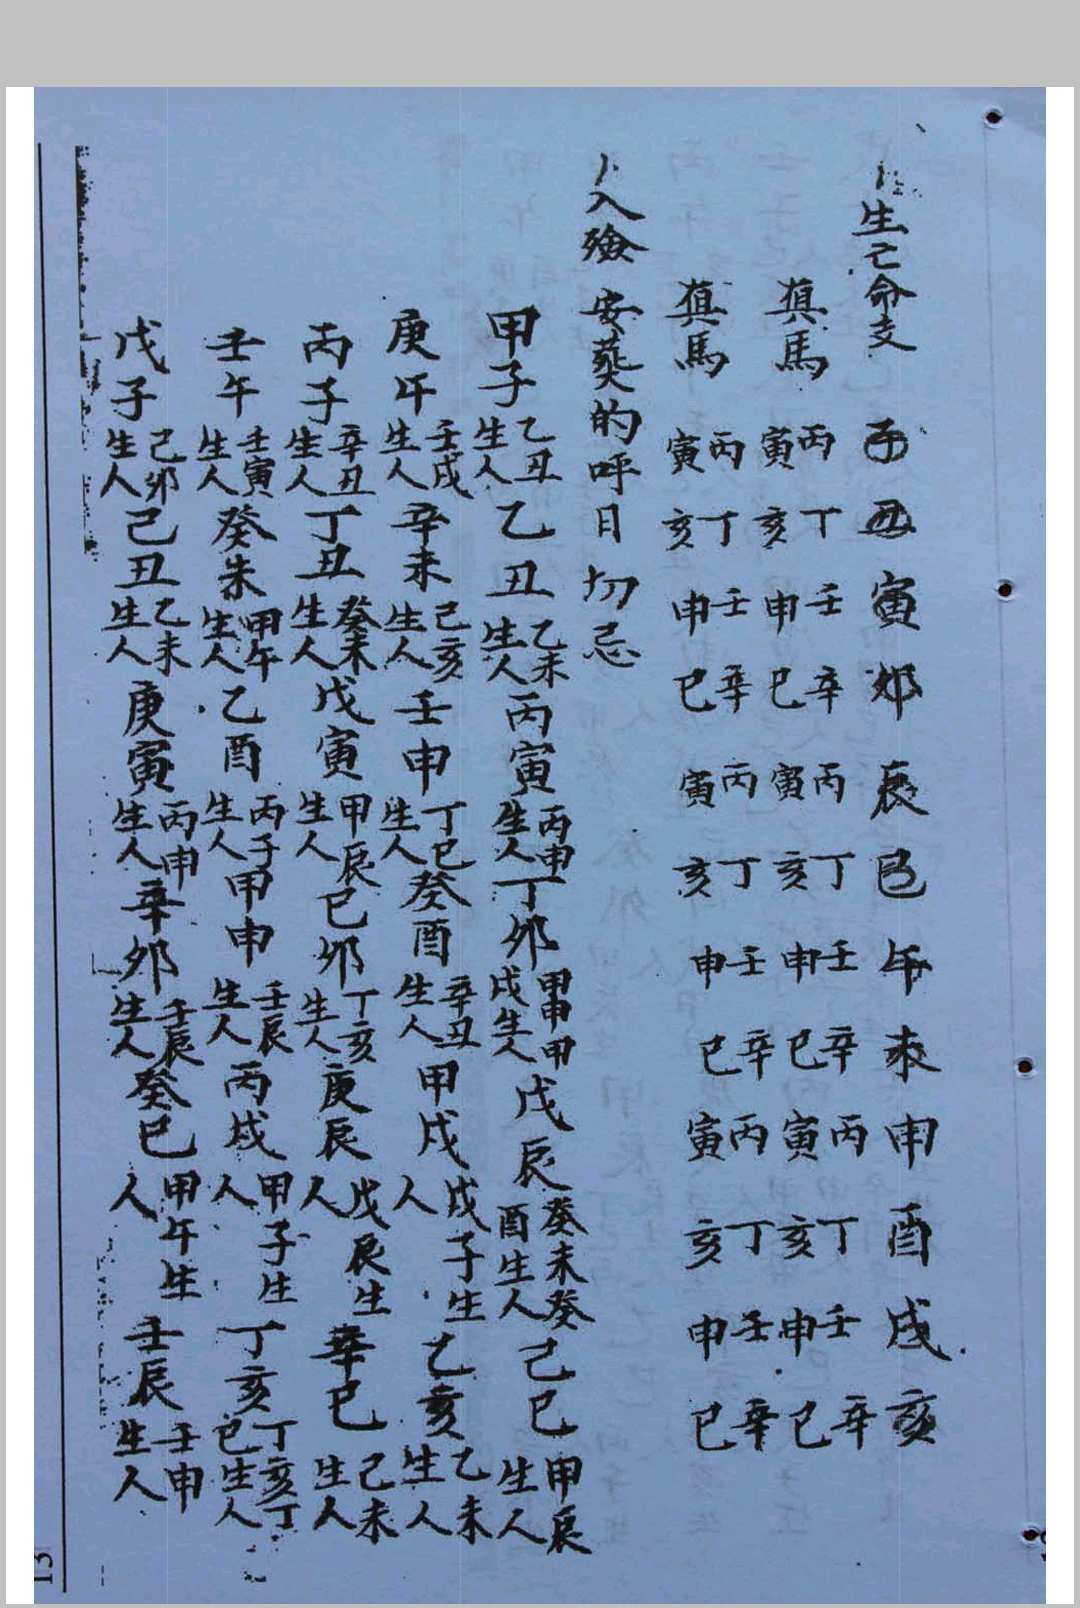 生亡命支 子 丑 寅 卯 辰 巳 午 未 申 酉 戌 亥
真馬 丙寅 丁亥 壬申 辛巳 丙寅 丁亥 壬申 辛巳 丙寅 丁亥 壬申 辛巳
真馬 丙寅 丁亥 壬申 辛巳 丙寅 丁亥 壬申 辛巳 丙寅 丁亥 壬申 辛巳
入殮安葬的呼日切忌
甲子 乙丑生人 乙丑 乙未生人 丙寅 丙申生人 丁卯 甲申甲戌生人 戊辰 癸未癸酉生人 己巳 甲辰生人
庚午 壬戌生人 辛未 己亥生人 壬申 丁巳生人 癸酉 辛丑生人 甲戌 戊子生人 乙亥 乙未生人
丙子 辛丑生人 丁丑 癸未生人 戊寅 甲辰生人 己卯 丁亥生人 庚辰 戊辰生人 辛巳 己未生人
壬午 壬寅生人 癸未 甲午生人 乙酉 丙子生人 甲申 壬辰生人 丙戌 甲子生人 丁亥 丁亥丁巳生人
戊子 己卯生人 己丑 乙未生人 庚寅 丙申生人 辛卯 壬辰生人 癸巳 甲午生人 壬辰 壬申生人
13